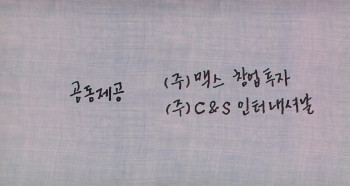 공동제공
(주) 맥스 창업투자
(주) C&S 인터내셔날